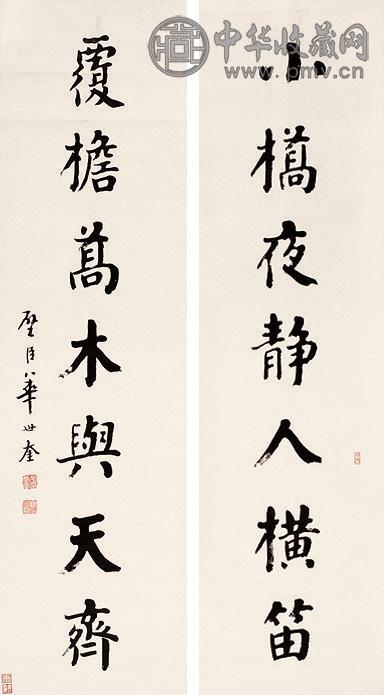 中华收藏网
www.pmv.cn
小橋夜静人横笛
覆檐萬木與天齊
壁臣華世奎